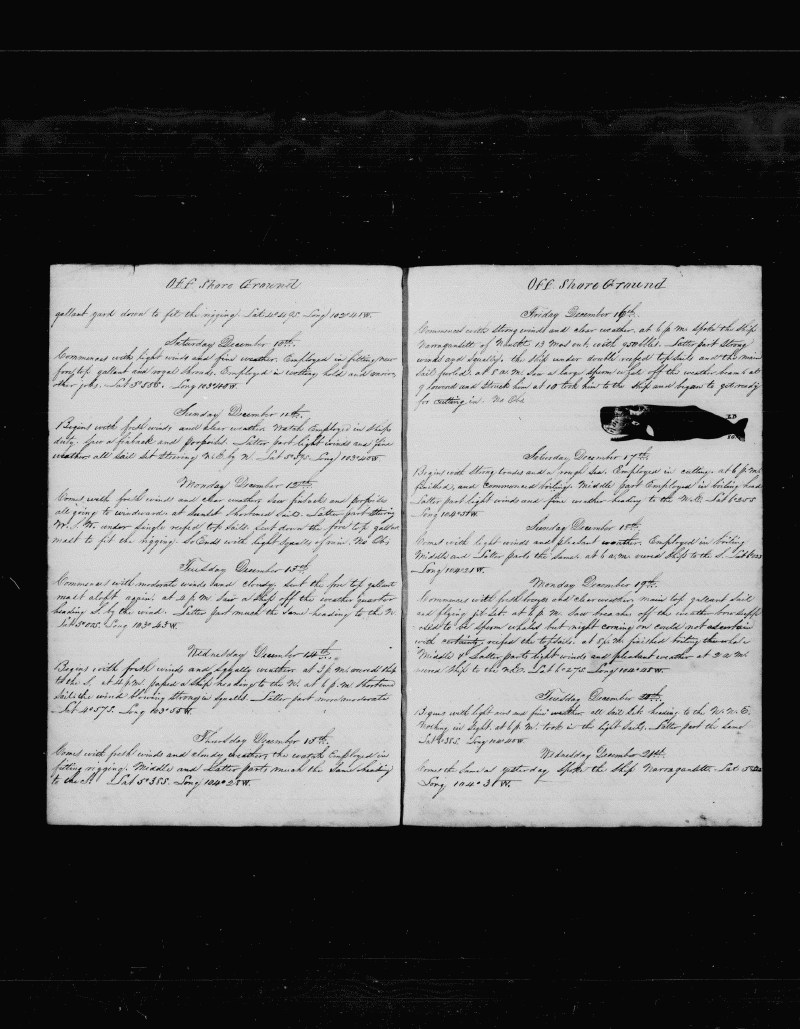 Off Shore Ground
gallant yard down to fit the rigging. Lat 4° 49 S. Long 103° 41 W.
Saturday December 10th.
Commences with light winds and fine weather. Employed in fitting new
fore top gallant and royal shrouds. Employed in
other jobs. Lat 5° 55 S. Long 103° 40 W.
Sunday December 11th.
Begins with fresh winds and clear weather. Watch Employed in ships
duty. Saw a finback and porpoises. Latter part light winds and fine
weather all sail set Steering N.E. by N. Lat 5° S. Long 103° 40 W.
Monday December 12th.
Comes with fresh winds and clear weather saw finbacks and porpoises
all going to windward at Sunset Shortened Sail. Latter part Steering
under single reefed top sails. Sent down the fore top gallant
mast to fit the rigging. So Ends with light squalls of rain. No Obs
Tuesday December 13th
Commences with moderate winds and cloudy. Sent the fore top gallant
mast aloft again. at 2 P.M. Saw a Ship off the weather quarter
heading S. by the wind. Latter part much the Same heading to the N.
Lat 5° 02 S. Long 103° 43 W.
Wednesday December 14th.
Begins with fresh winds and Squally weather at 3 p. m. wored ship
to the S. at 4 p. m. passed a Ship heading to the N. at 6 p. m. Shortened
Sail the wind blowing strong in squalls. Latter part more moderate
Lat 4° 57 S. Long 103° 55 W.
Thursday December 15th.
Comes with fresh winds and cloudy weather, the watch Employed in
fitting rigging. Middle and Latter parts much the Same heading
to the S. Lat 5° 38 S. Long 104° 25 W.
Off Shore Ground
Friday December 16th.
Commences with strong winds and clear weather. at 6 p. m. Spoke the Ship
Narragansett of Nantkt 13 Mos out with 950 bbls. Latter part Strong
winds and Squally. the ship under double reefed topsails and the main
sail furled. at 5 a. m. Saw a large sperm whale off the weather beam
lowered and Struck him at 10 took him to the Ship and began to get ready
for cutting in. No Obs
80
Saturday December 17th.
Begins with Strong trades and a rough Sea. Employed in cutting. at 6 p. m.
finished, and commenced boiling. Middle part Employed in boiling head
Latter part light winds and fine weather heading to the N.E. Lat 6° 25 S
Long 104° 51 W.
Sunday December 18th.
Comes with light winds and pleasant weather. Employed in boiling
Middle and Latter parts the Same. at 6 a. m. wored Ship to the S.
Long 104° 21 W.
Monday December 19th.
Commences with fresh breeze and clear weather main top gallant sail
and flying jib set. at 6 p. m. Saw breaches off the weather bow supp
osed to be sperm whales but night coming on could not ascertain
with certainty, reefed the topsails. at 8 p. m. finished boiling the whale
Middle & Latter parts light winds and pleasant weather at 2 a. m.
wored Ship to the N.E. Lat 6° 27 S. Long 104° 28 W.
Tuesday December 20th.
Begins with light airs and fine weather. all sail set heading to the N. N. E.
Nothing in Sight. at 6 p. m. took in the light Sails. Latter part the same
Long 104° 40 W.
Wednesday December 21st.
Comes the Same as yesterday Spoke the Ship Narragansett. Lat
Long 104° 31 W.